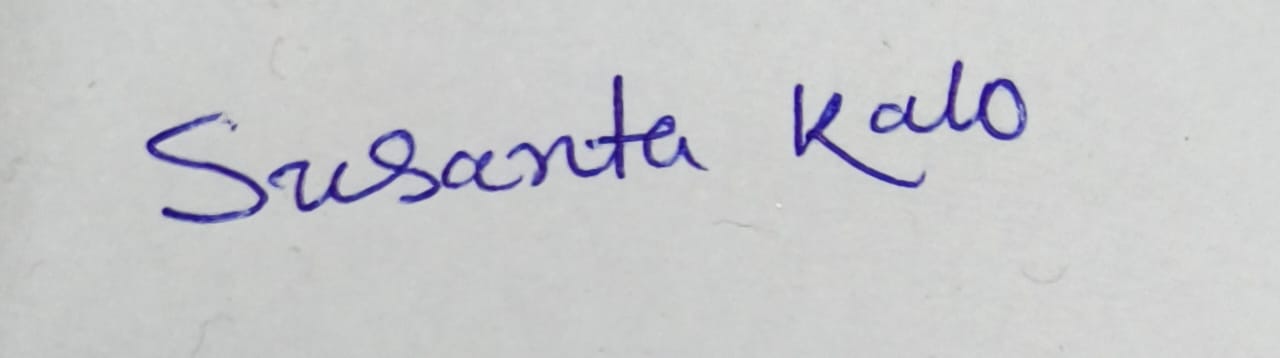 Susanta Kalo